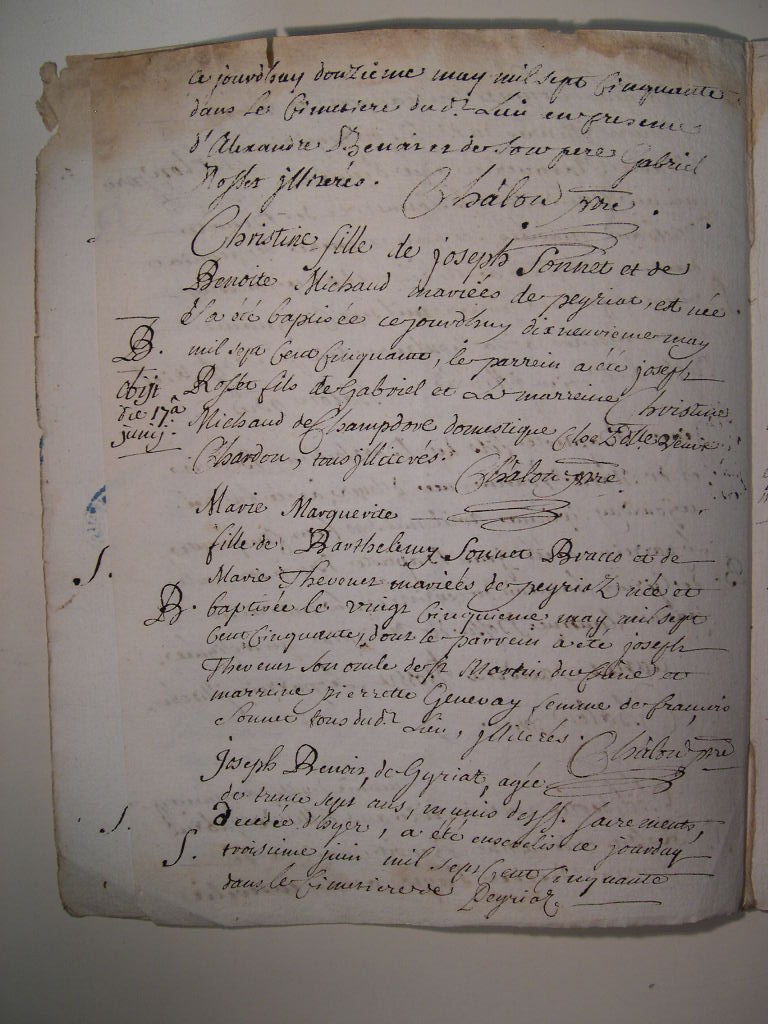 ce jourdhuy douzieme may mil sept Cinquante
dans le Cimetiere du dt Lieu en presence
d'Alexandre Benoit et de son pere Gabriel
Rosset jlliterés. Châlon ptre
Christine fille de joseph Sonnet et de
Benoite Michaud mariées de peyriat, est née
& a été baptisée ce jourdhuy dixneuvieme may
B. mil sept Cent Cinquante, le parrein a été joseph
obijt Rosset fils de Gabriel et La marreine Christine
die 17a Michaud de Champdore domestique Chez
junij. Chardon, tous jlliterés. Châlon ptre
Marie Marguerite
fille de Barthelemy Sonnet Bracco et de
S. Marie Thevenet mariées de peyriaz née et
B. baptisée le vingt Cinquieme may mil sept
Cent Cinquante, dont le parrein a été joseph
Thevenet son oncle de St Martin du frêne et
marreine pierrette Genevay femme de françois
Sonnet tous du dt Lieu, jlliterés. Châlon ptre
Joseph Benoit, de Gyriat, agée
de trente sept ans, munis des SS. sacrements,
decedée d'hyer, a été ensevelis ce jourduy
S. troisieme juin mil sept Cent Cinquante
dans le Cimetiere de Peyriaz